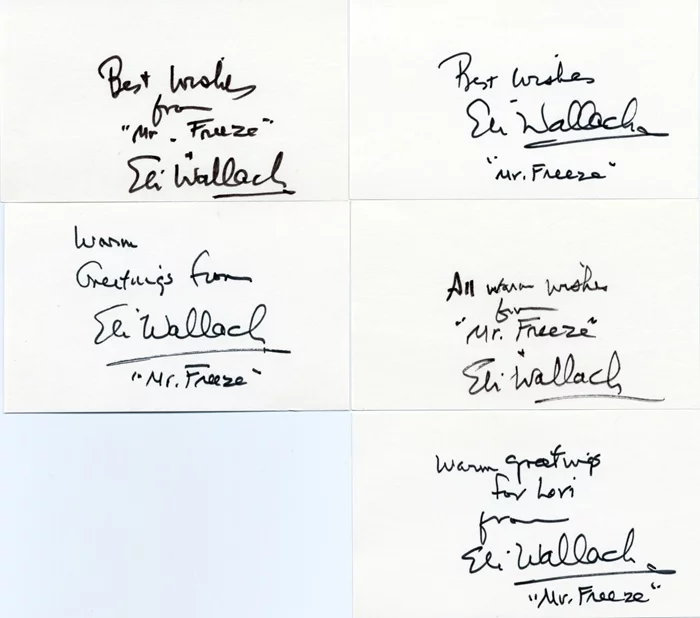 Best Wishes
from
"Mr. Freeze"
Eli Wallach
Best Wishes
Eli Wallach
"Mr. Freeze"
Warm
Greetings from
Eli Wallach
"Mr. Freeze"
All warm wishes
from
"Mr. Freeze"
Eli Wallach
Warm greetings
for Lori
from
Eli Wallach
"Mr. Freeze"